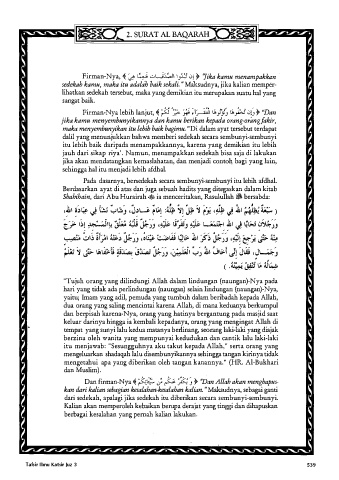 2. SURAT AL BAQARAH
Firman-Nya, ﴿ إِن تُبْدُوا الصَّدَقَـــاتِ فَنِعِمَّا هِيَ ﴾ "Jika kamu menampakkan
sedekah kamu, maka itu adalah baik sekali." Maksudnya, jika kalian memper-
lihatkan sedekah tersebut, maka yang demikian itu merupakan suatu hal yang
sangat baik.
Firman-Nya lebih lanjut, ﴿ وَإِن تُخْفُوهَا وَتُؤْتُوهَا الْفُقَـــرَآءَ فَهُوَ خَيْرٌ لَّكُمْ ﴾ "Dan
jika kamu menyembunyikannya dan kamu berikan kepada orang-orang fakir,
maka menyembunyikan itu lebih baik bagimu." Di dalam ayat tersebut terdapat
dalil yang menunjukkan bahwa memberi sedekah secara sembunyi-sembunyi
itu lebih baik daripada menampakkannya, karena yang demikian itu lebih
jauh dari sikap riya'. Namun, menampakkan sedekah bisa saja di lakukan
jika akan mendatangkan kemaslahatan, dan menjadi contoh bagi yang lain,
sehingga hal itu menjadi lebih afdhal.
Pada dasarnya, bersedekah secara sembunyi-sembunyi itu lebih afdhal.
Berdasarkan ayat di atas dan juga sebuah hadits yang ditegaskan dalam kitab
Shahihain, dari Abu Hurairah ia menceritakan, Rasulullah ﷺ bersabda:
( سَبْعَةٌ يُظِلُّهُمُ اللهُ فِي ظِلِّهِ، يَوْمَ لاَ ظِلَّ إِلاَّ ظِلُّهُ: إِمَامٌ عَـــادِلٌ، وَشَابٌّ نَشَأَ فِي عِبَادَةِ اللهِ،
وَرَجُلاَنِ تَحَابَّا فِي اللهِ اجْتَمَعَـا عَلَيْهِ وَتَفَرَّقَا عَلَيْهِ، وَرَجُلٌ قَلْبُهُ مُعَلَّقٌ بِالْمَسْجِدِ إِذَا خَرَجَ
مِنْهُ حَتَّى يَرْجِعَ إِلَيْهِ، وَرَجُلٌ ذَكَرَ اللهَ خَالِيًا فَفَاضَتْ عَيْنَاهُ، وَرَجُلٌ دَعَتْهُ امْرَأَةٌ ذَاتُ مَنْصِبٍ
وَجَمَــــالٍ، فَقَالَ إِنِّي أَخَافُ اللهَ رَبَّ الْعَالَمِيْنَ، وَرَجُلٌ تَصَدَّقَ بِصَدَقَةٍ فَأَخْفَاهَا حَتَّى لاَ تَعْلَمَ
شِمَالُهُ مَا تُنْفِقُ يَمِيْنُهُ. )
"Tujuh orang yang dilindungi Allah dalam lindungan (naungan)-Nya pada
hari yang tidak ada perlindungan (naungan) selain lindungan (naungan)-Nya,
yaitu; Imam yang adil, pemuda yang tumbuh dalam beribadah kepada Allah,
dua orang yang saling mencintai karena Allah, di mana keduanya berkumpul
dan berpisah karena-Nya, orang yang hatinya bergantung pada masjid saat
keluar darinya hingga ia kembali kepadanya, orang yang mengingat Allah di
tempat yang sunyi lalu kedua matanya berlinang, seorang laki-laki yang diajak
berzina oleh wanita yang mempunyai kedudukan dan cantik lalu laki-laki
itu menjawab: "Sesungguhnya aku takut kepada Allah." serta orang yang
mengeluarkan shadaqah lalu disembunyikannya sehingga tangan kirinya tidak
mengetahui apa yang diberikan oleh tangan kanannya." (HR. Al-Bukhari
dan Muslim).
Dan firman-Nya ﴿ وَ يُكَفِّرُ عَنكُم مِّن سَيِّئَاتِكُمْ ﴾ "Dan Allah akan menghapus-
kan dari kalian sebagian kesalahan-kesalahan kalian." Maksudnya, sebagai ganti
dari sedekah, apalagi jika sedekah itu diberikan secara sembunyi-sembunyi.
Kalian akan memperoleh kebaikan berupa derajat yang tinggi dan dihapuskan
berbagai kesalahan yang pernah kalian lakukan.
Tafsir Ibnu Katsir Juz 3 539